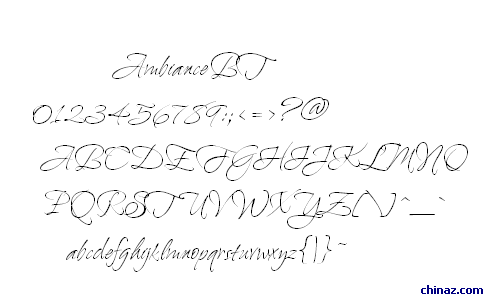 Ambiance BT
0123456789:;<=>?@
ABCDEFGHIJKLMNO
PQRSTUVWXYZ[\]^_`
abcdefghijklmnopqrstuvwxyz{|}~
chinaz.com